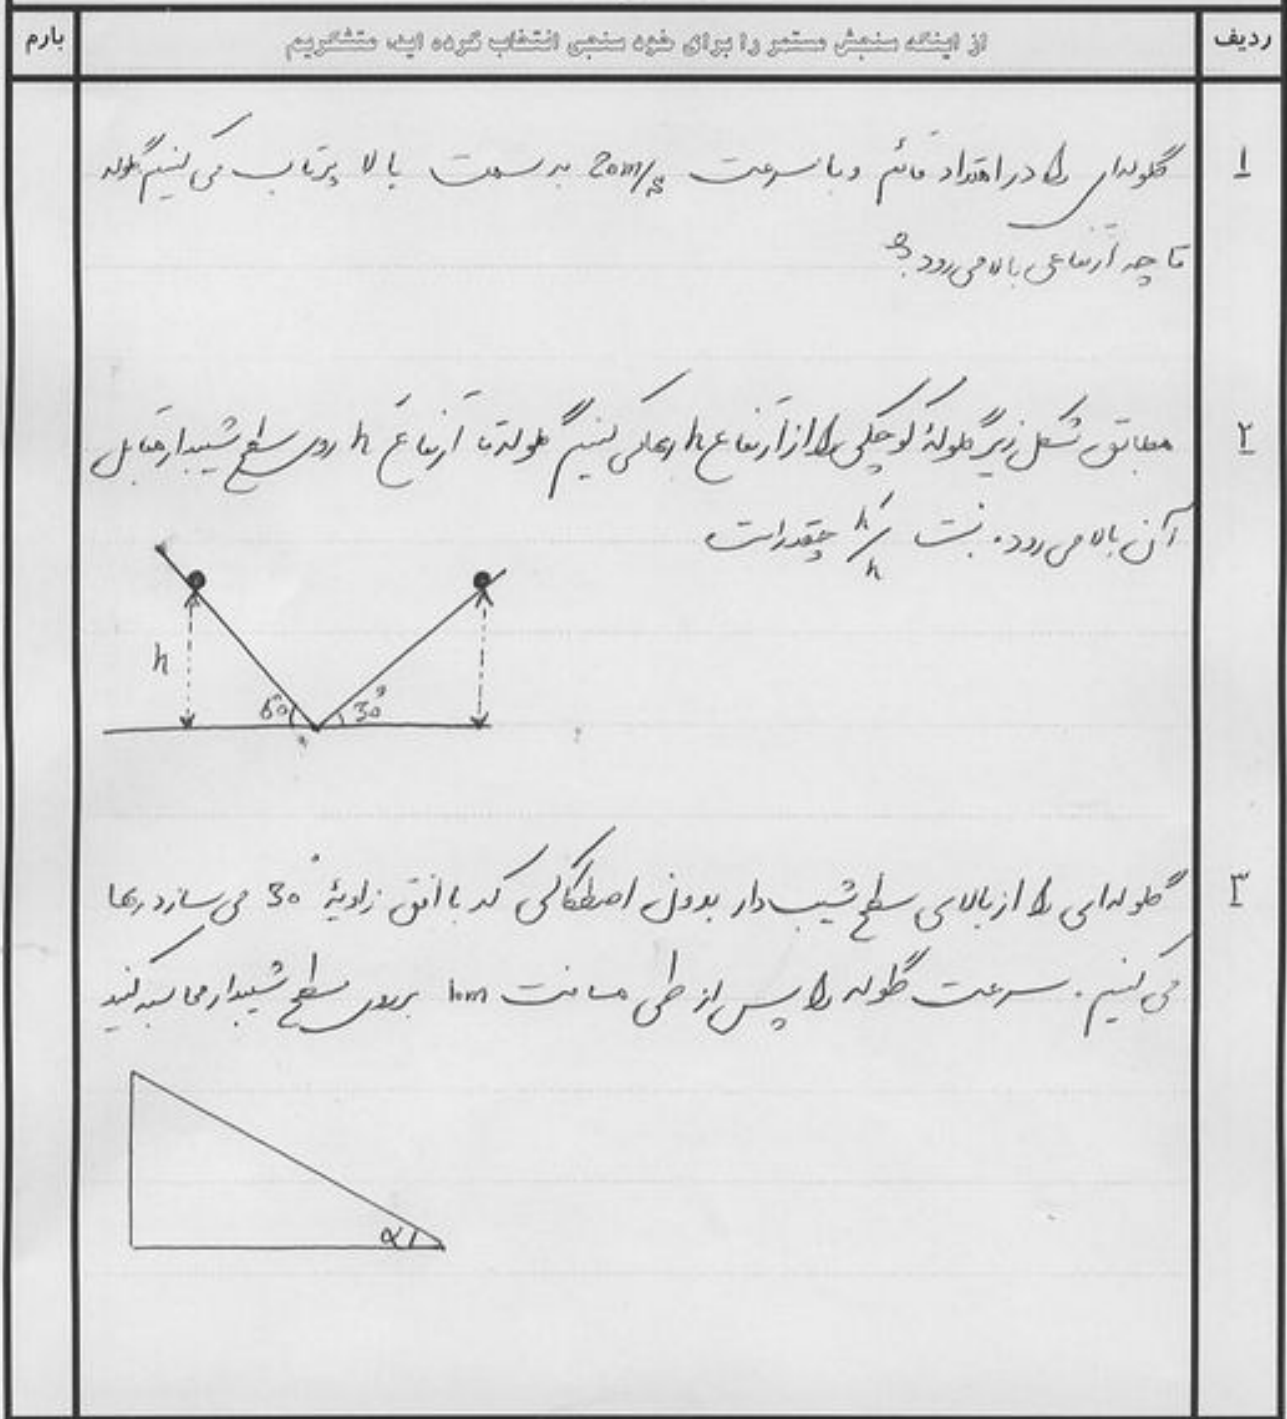 ردیف
از اینکه سنجش مستمر را برای خود سنجی انتخاب کرده اید، متشکریم
بارم
۱
گلوله‌ای را در امتداد قائم و با سرعت 20m/s به سمت بالا پرتاب می کنیم گلوله
تا چه ارتفاعی بالا می رود؟
۲
مطابق شکل زیر گلولهٔ کوچکی را از ارتفاع h رها می کنیم گلوله تا ارتفاع h' روی سطح شیبدار مقابل
آن بالا می رود. نسبت h'/h چقدر است
h
60°
30°
۳
گلوله‌ای را از بالای سطح شیب دار بدون اصطکاکی که با افق زاویهٔ 30° می سازد رها
می کنیم. سرعت گلوله را پس از طی مسافت 10m بر روی سطح شیبدار محاسبه کنید
α